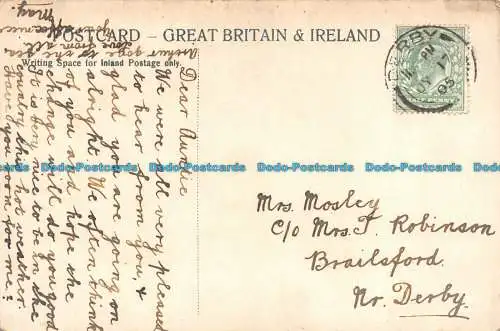 POSTCARD – GREAT BRITAIN & IRELAND
Writing Space for Inland Postage only.
Dear Auntie
We were all very pleased
to hear from you, &
glad you are going on
alright. We often think
of you and hope the
change will do you good
It is very nice to be in the
country this hot weather.
Have you room for me?
love from all
May.
DERBY
PM
Mrs. Mosley
C/o Mrs. T. Robinson
Brailsford.
Nr. Derby.
Dodo-Postcards Dodo-Postcards Dodo-Postcards Dodo-Postcards